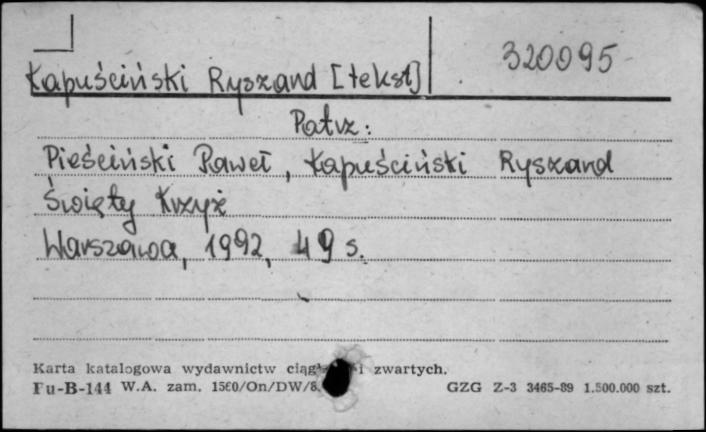 320095
Kapuściński Ryszard [tekst]
Patrz:
Pieściński Paweł, Kapuściński Ryszard
Święty Krzyż
Warszawa, 1992, 49 s.
Karta katalogowa wydawnictw i zwartych.
Fu-B-144 W.A. zam. 1560/On/DW/8. GZG Z-3 3465-89 1.500.000 szt.